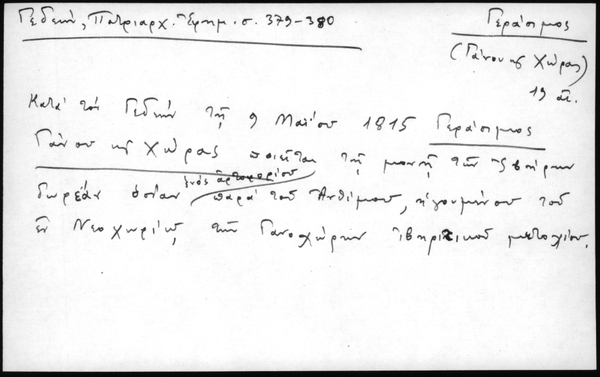 Γεδεών, Πατριαρχ. Ἐφημ. σ. 379-380
Γεράσιμος
(Γάνου κ Χώρας)
19 αἰ.
Κατά τόν Γεδεών τῇ 9 Μαΐου 1815 Γεράσιμος
Γάνου κ Χώρας ποιεῖται τῇ μονῇ τῶν Ἰβήρων
ἑνός ἀρτοφορίου
δωρεάν παρά τοῦ Ἀνθίμου, ἡγουμένου τοῦ
ἐν Νεοχωρίῳ, τῶν Γανοχώρων ἰβηριτικοῦ μετοχίου.